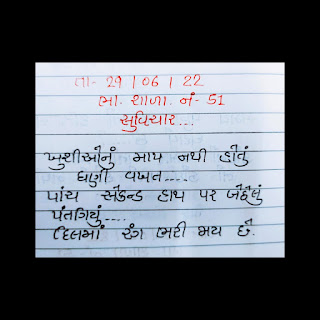 તા- 29 | 06 | 22
ભા. શાળા. નં- 51
સુવિચાર...
ખુશીઓનું માપ નથી હોતું
ઘણી વખત....
પાંચ સેકન્ડ હાથ પર બેઠેલું
પંતગિયું....
દિલમાં રંગ ભરી જાય છે.